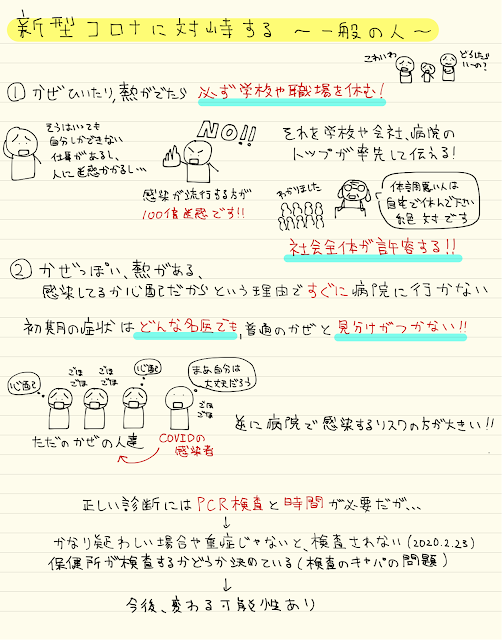 新型コロナに対峙する 〜一般の人〜
こわいわ
どうしたらいーの?
① かぜひいたり、熱がでたら 必ず学校や職場を休む!
そうはいっても
自分しかできない
仕事があるし、
人に迷惑かかるし…
NO!!
感染が流行する方が
100倍迷惑です!!
それを学校や会社、病院の
トップが率先して伝える!
わかりました
体調悪い人は
自宅で休んで下さい
絶対です
社会全体が許容する!!
② かぜっぽい、熱がある、
感染してるか心配だから という理由で すぐに病院に行かない
初期の症状は どんな名医でも、普通のかぜと 見分けがつかない!!
心配
ごほ ごほ
ごほ ごほ
心配
ごほ ごほ
まあ自分は
大丈夫だろう
ただのかぜの人達
COVIDの
感染者
逆に病院で感染するリスクの方が大きい!!
正しい診断には PCR検査と時間が必要だが…
↓
かなり疑わしい場合や重症じゃないと、検査されない (2020.2.23)
保健所が検査するかどうか決めている (検査のキャパの問題)
↓
今後、変わる可能性あり